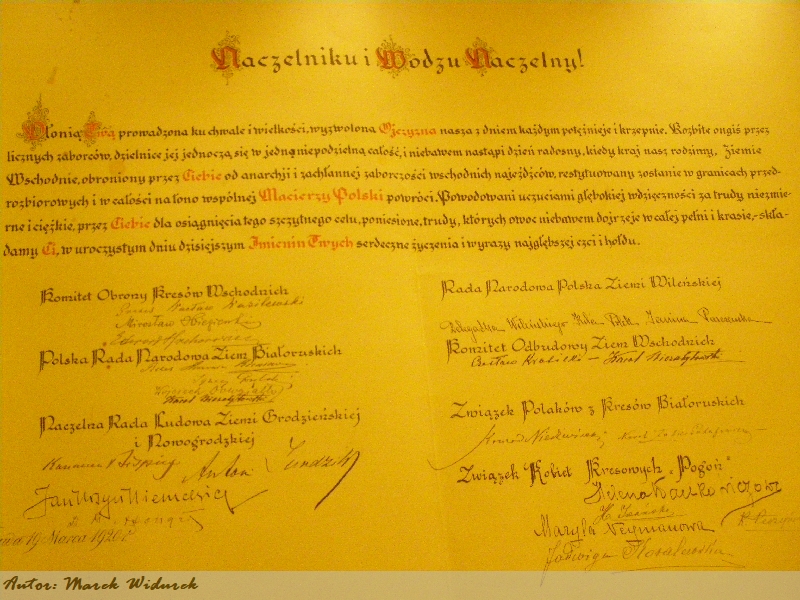 Naczelniku i Wodzu Naczelny!
Dłonią Twą prowadzona ku chwale i wielkości, wyzwolona Ojczyzna nasza z dniem każdym potężnieje i krzepnie. Rozbite ongiś przez
licznych zaborców, dzielnice jej jednoczą się w jedną niepodzielną całość, i niebawem nastąpi dzień radosny, kiedy kraj nasz rodzimy, Ziemie
Wschodnie, obroniony przez Ciebie od anarchji i zachłannej zaborczości wschodnich najeźdźców, restytuowany zostanie w granicach przed-
rozbiorowych i w całości na łono wspólnej Macierzy Polski powróci. Powodowani uczuciami głębokiej wdzięczności za trudy niezmier-
ne i ciężkie, przez Ciebie dla osiągnięcia tego szczytnego celu, poniesione, trudy, których owoc niebawem dojrzeje w całej pełni i krasie,- skła-
damy Ci, w uroczystym dniu dzisiejszym Imienin Twych serdeczne życzenia i wyrazy najgłębszej czci i hołdu.
Komitet Obrony Kresów Wschodnich
Mirosław
Edward
Polska Rada Narodowa Ziem Białoruskich
Karol
Naczelna Rada Ludowa Ziemi Grodzieńskiej
i Nowogrodzkiej
Kazimierz
Antoni
Jan Ursyn Niemcewicz
19 Marca 1920 r.
Rada Narodowa Polska Ziemi Wileńskiej
Delegatka Wileńskiego Koła Janina
Komitet Odbudowy Ziem Wschodnich
Czesław Krabicki – Karol
Związek Polaków z Kresów Białoruskich
Konrad
Związek Kobiet Kresowych „Pogoń"
Helena
Maryla Neymanowa
Jadwiga Kowalewska
Autor: Marek Widurek